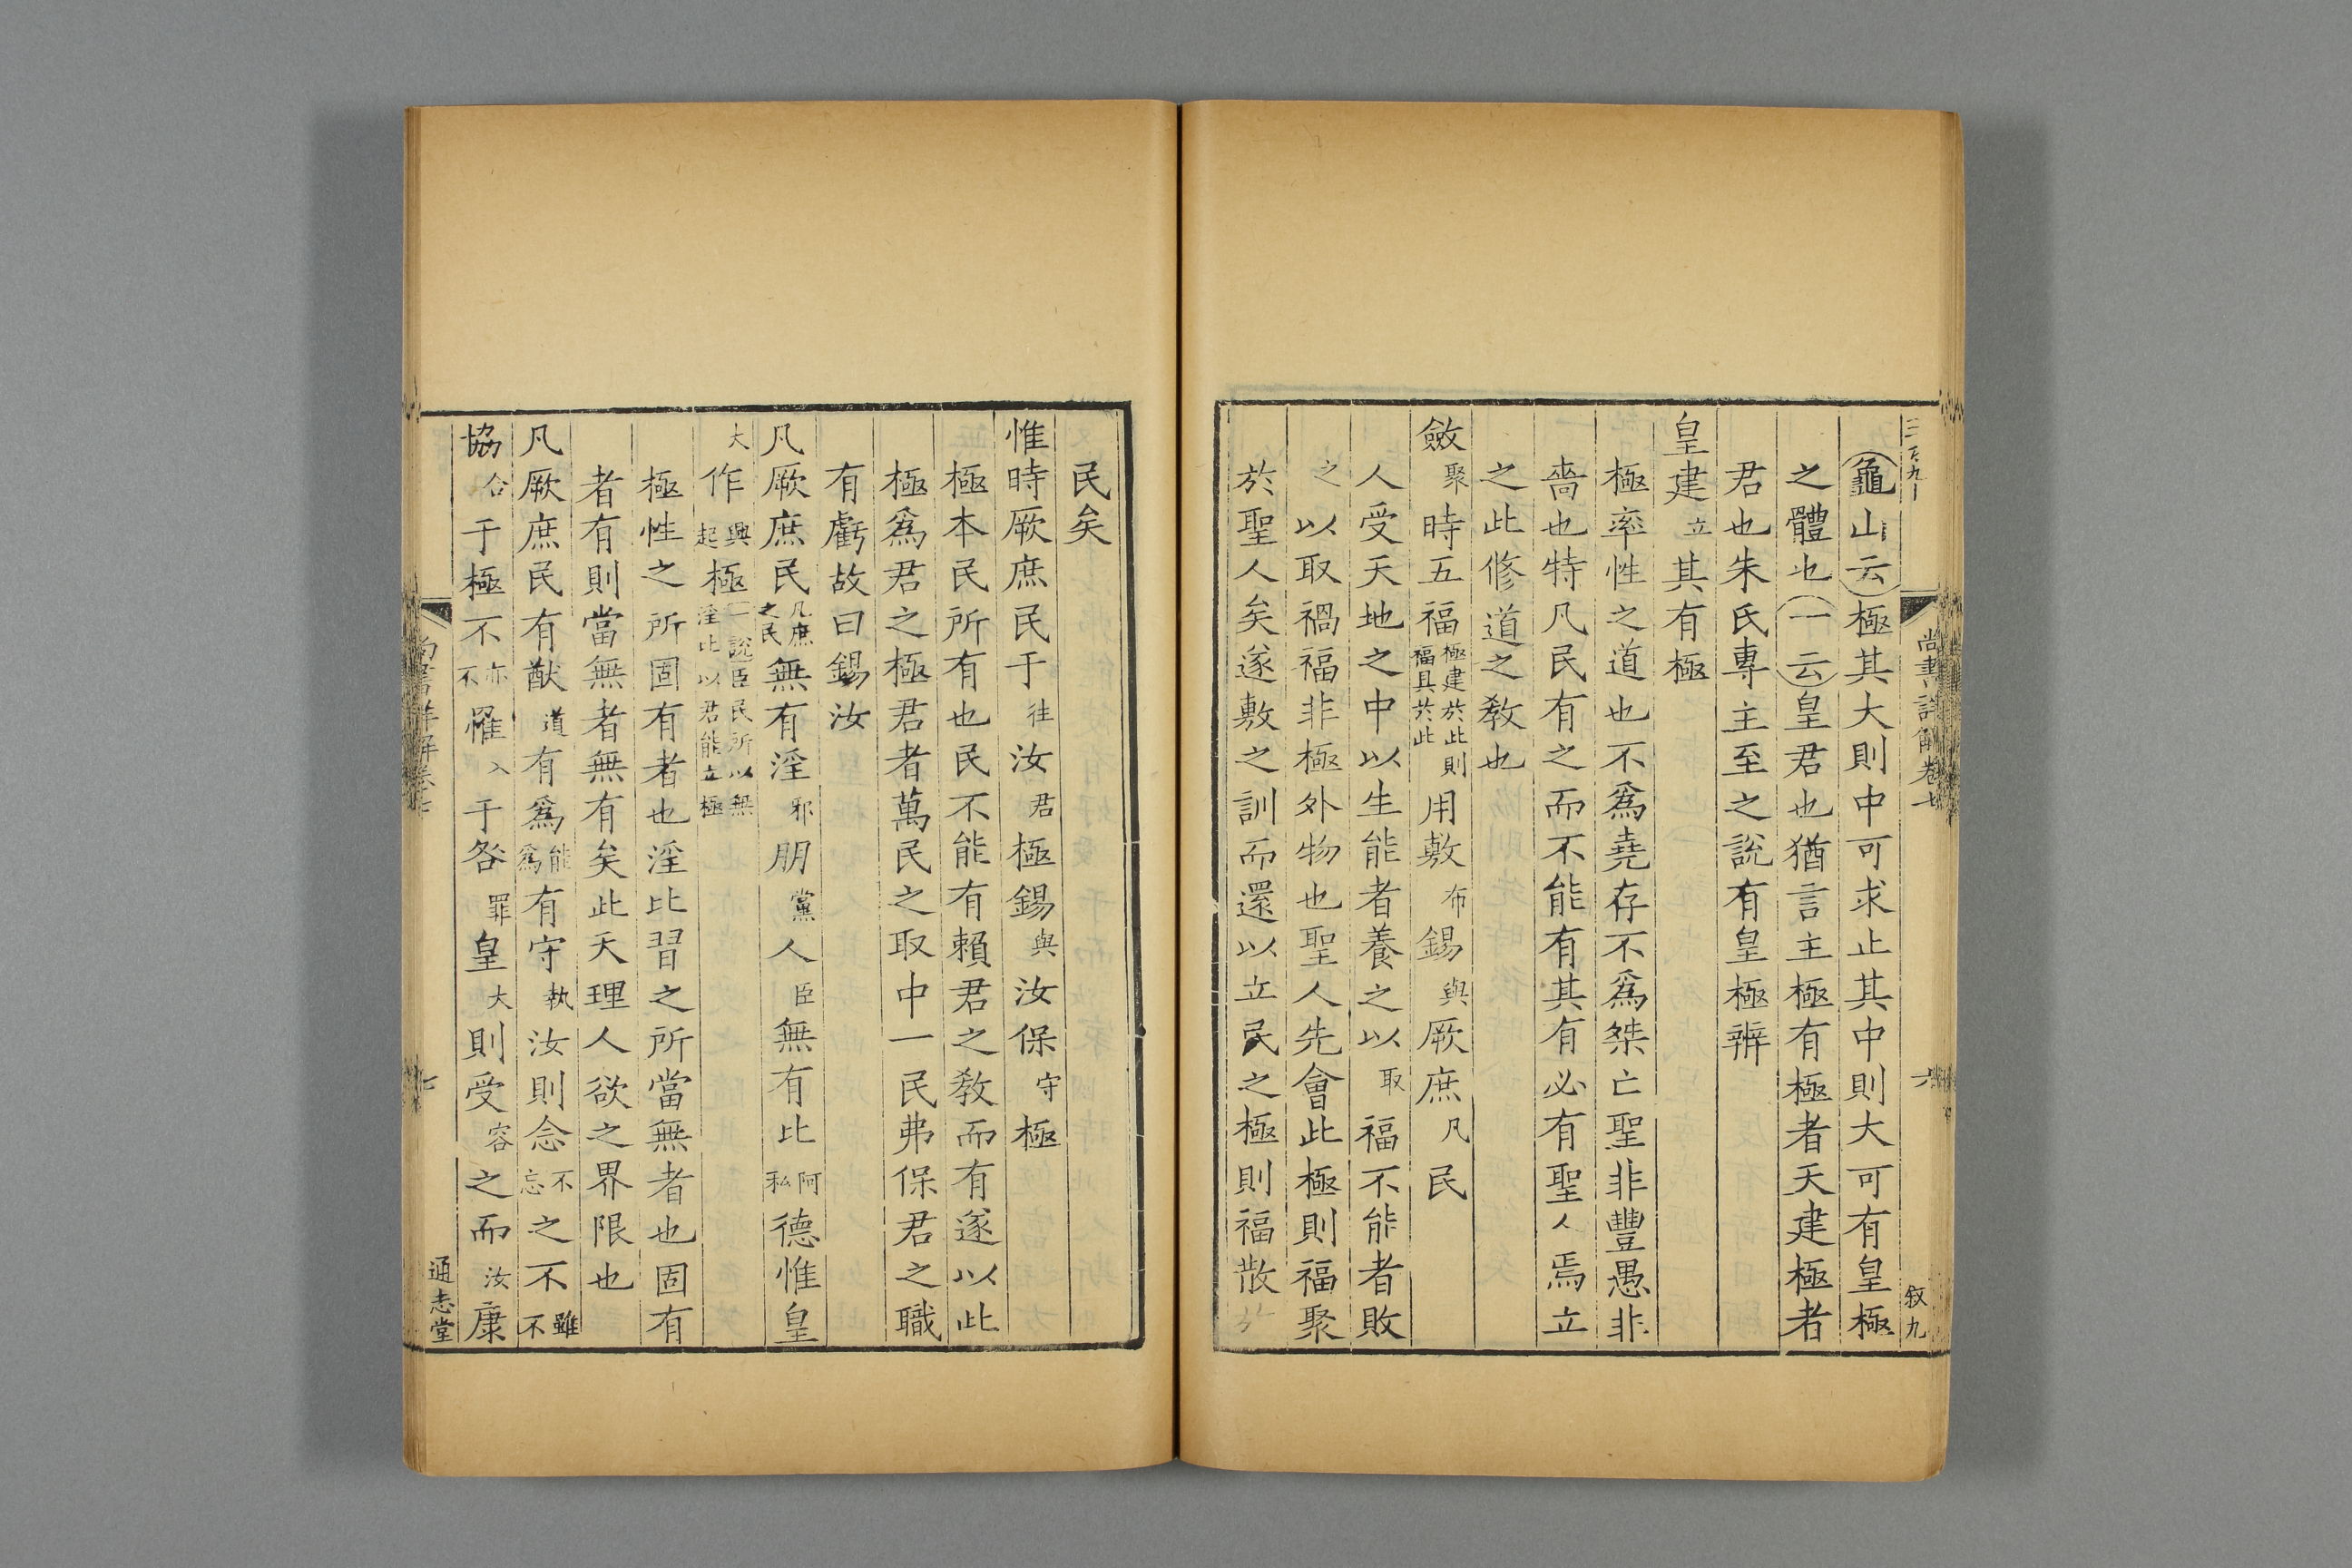 尚書詳解卷七
六
叙九
龜山云極其大則中可求止其中則大可有皇極
之體也一云皇君也猶言主極有極者天建極者
君也朱氏專主至之說有皇極辨
皇建立其有極
極率性之道也不爲堯存不爲桀亡聖非豐愚非
嗇也特凡民有之而不能有其有必有聖人焉立
之此修道之敎也
斂聚時五福極建於此則福具於此用敷布錫與厥庶凡民
人受天地之中以生能者養之以取福不能者敗
之以取禍福非極外物也聖人先會此極則福聚
於聖人矣遂敷之訓而還以立民之極則福散
民矣
惟時厥庶民于往汝君極錫與汝保守極
極本民所有也民不能有賴君之敎而有遂以此
極爲君之極君者萬民之取中一民弗保君之職
有虧故曰錫汝
凡厥庶民凡庶之民無有淫邪朋黨人臣無有比阿私德惟皇
大作興起極一說臣民所以無淫比以君能立極
極性之所固有者也淫比習之所當無者也固有
者有則當無者無有矣此天理人欲之界限也
凡厥庶民有猷道有爲能爲有守執汝則念不忘之不雖不
協合于極不亦不罹入于咎罪皇大則受容之而汝康
尚書詳解卷七
七
通志堂